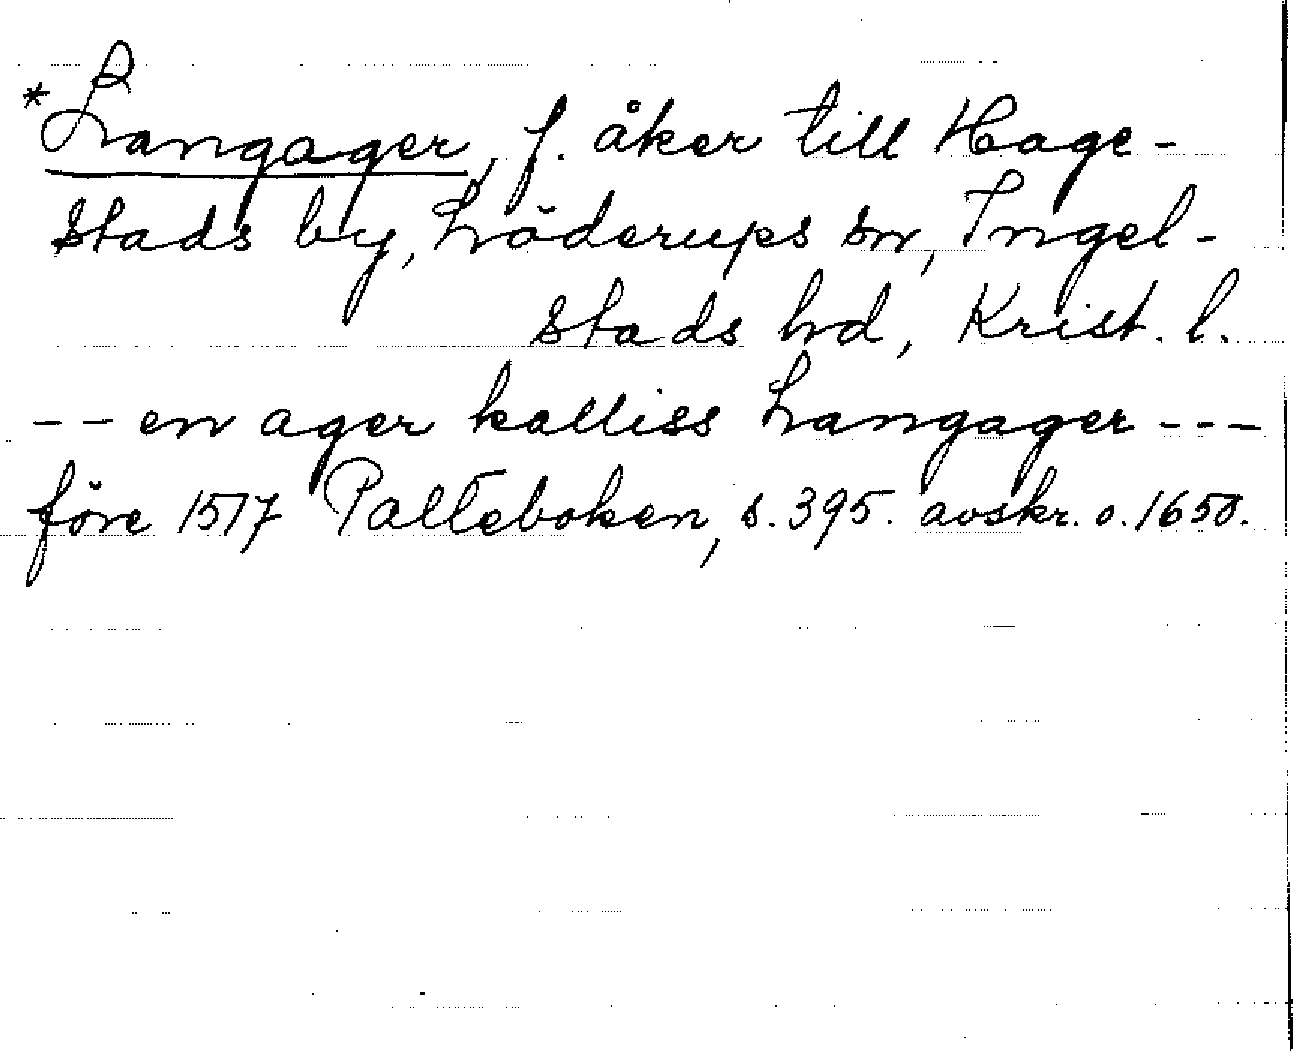 *Langager, f. åker till Hage-
stads by, Löderups sn, Ingel-
stads hd, Krist. l.
-- en ager kalliss Langager ---
före 1517 Palteboken, s. 395. avskr. o. 1650.